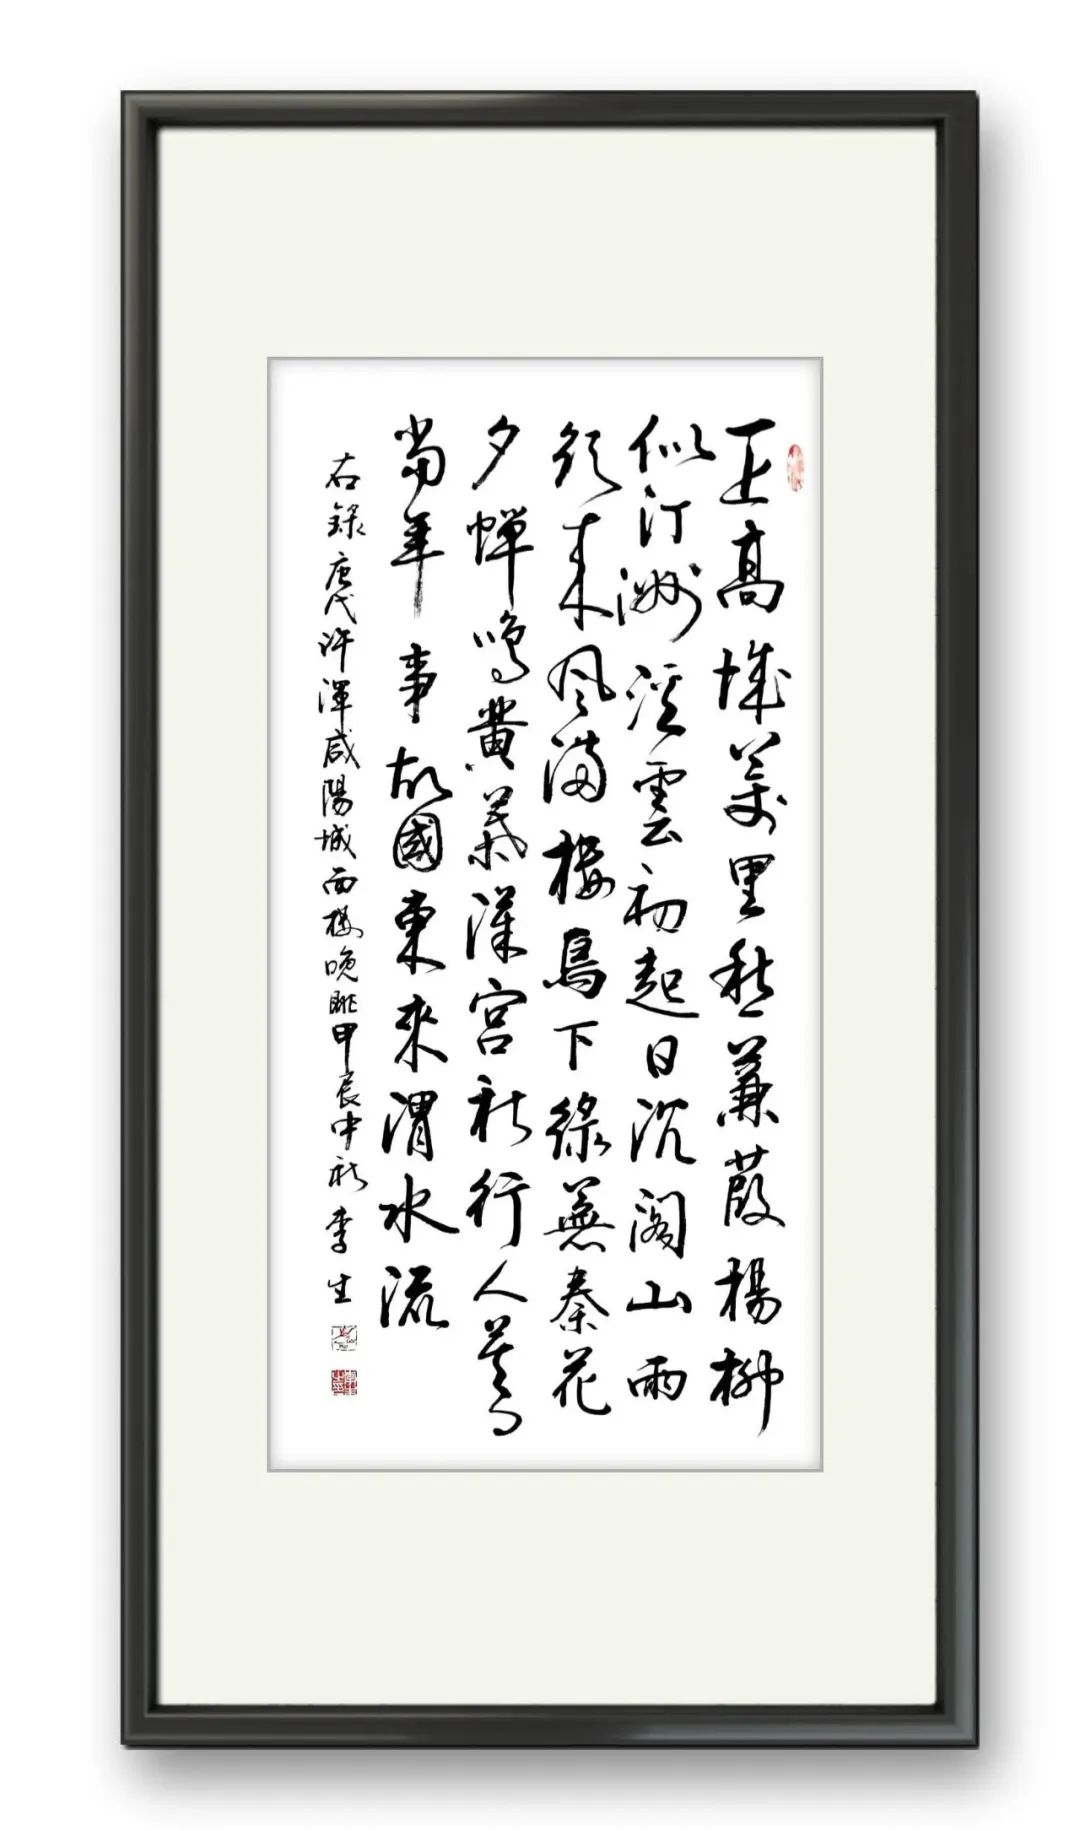 一上高城萬里愁蒹葭楊柳
似汀洲溪雲初起日沉閣山雨
欲来風滿樓鳥下綠蕪秦苑
夕蟬鳴黃葉漢宮秋行人莫問
當年事故國東來渭水流
右錄唐代許渾咸陽城西樓晚眺甲辰中秋李生